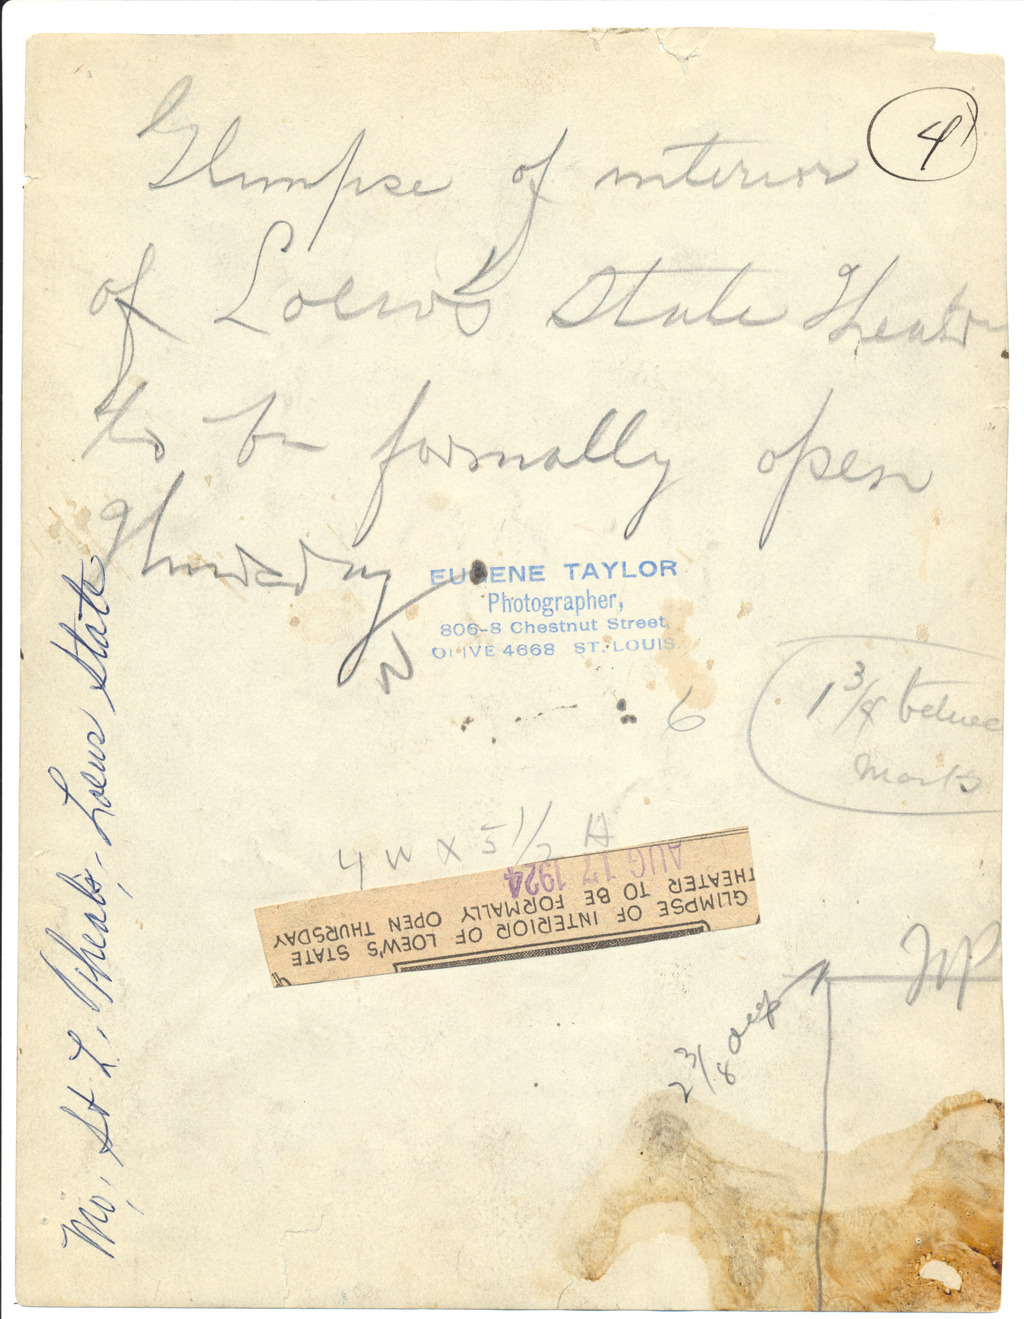 4
Glimpse of interior
of Loew's State Theatre
to be formally open
Thursday
EUGENE TAYLOR
Photographer,
806-8 Chestnut Street,
OLIVE 4668 ST. LOUIS
N
6
1 3/4 between
marks
4 W X 5 1/2 H
AUG 17 1924
GLIMPSE OF INTERIOR OF LOEW'S STATE
THEATER TO BE FORMALLY OPEN THURSDAY
2 3/8
Mo, St L, Theats, Loews State